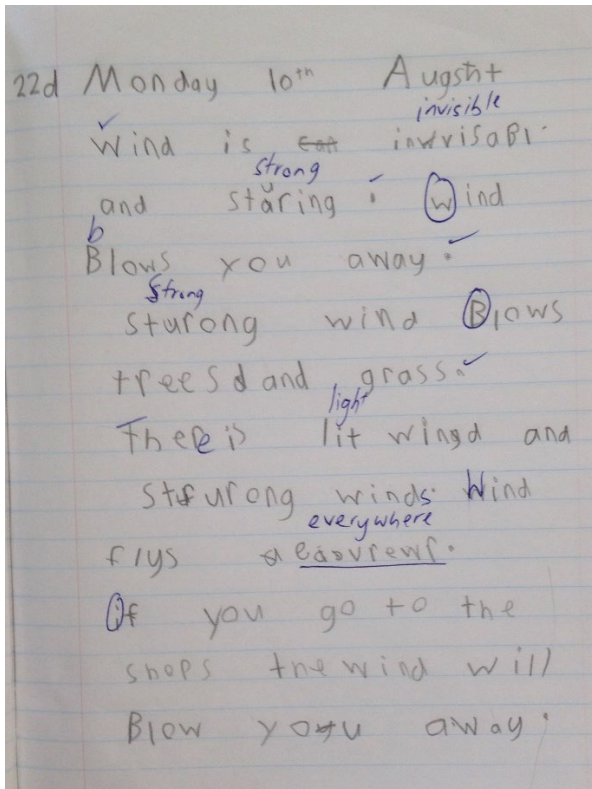 22d Monday 10th Augsht
invisible
Wind is invrisabl.
strong
and staring. Wind
b
Blows you away.
Strong
sturong wind Blows
treesd and grass.
light
There is lit wingd and
stfurong winds. Wind
everywhere
flys easvrewr.
If you go to the
shops the wind will
Blow you away.